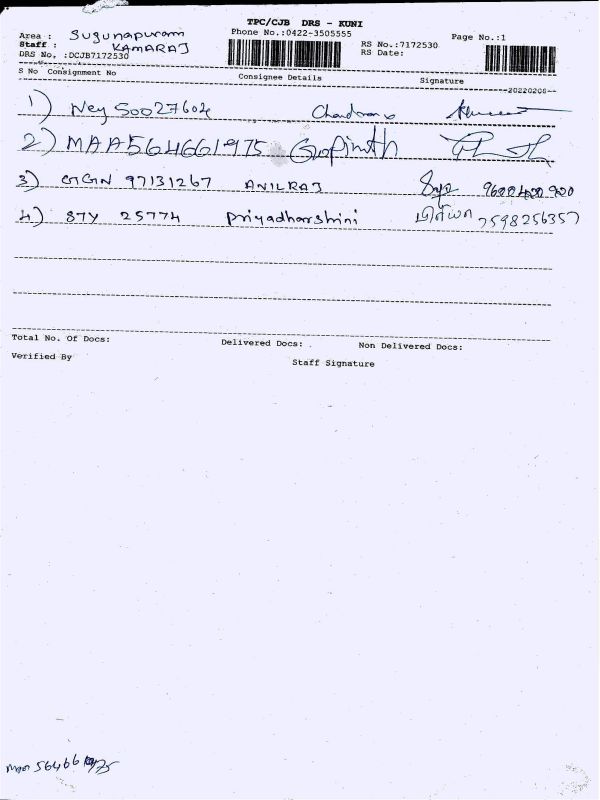 TPC/CJB DRS - KUNI
Area : Sugunapuram Phone No.:0422-3505555 Page No.:1
Staff : KAMARAJ RS No.:7172530
DRS No. :DCJB7172530 RS Date:
S No Consignment No Consignee Details Signature
--20220208--
1) Ney 50027604
2) MAA564661975 Gopinath
3) GGN 97131267 ANILRAJ
4) 87Y 25774 Priyadharshini பிரியா 7598256357
Total No. Of Docs: Delivered Docs: Non Delivered Docs:
Verified By Staff Signature